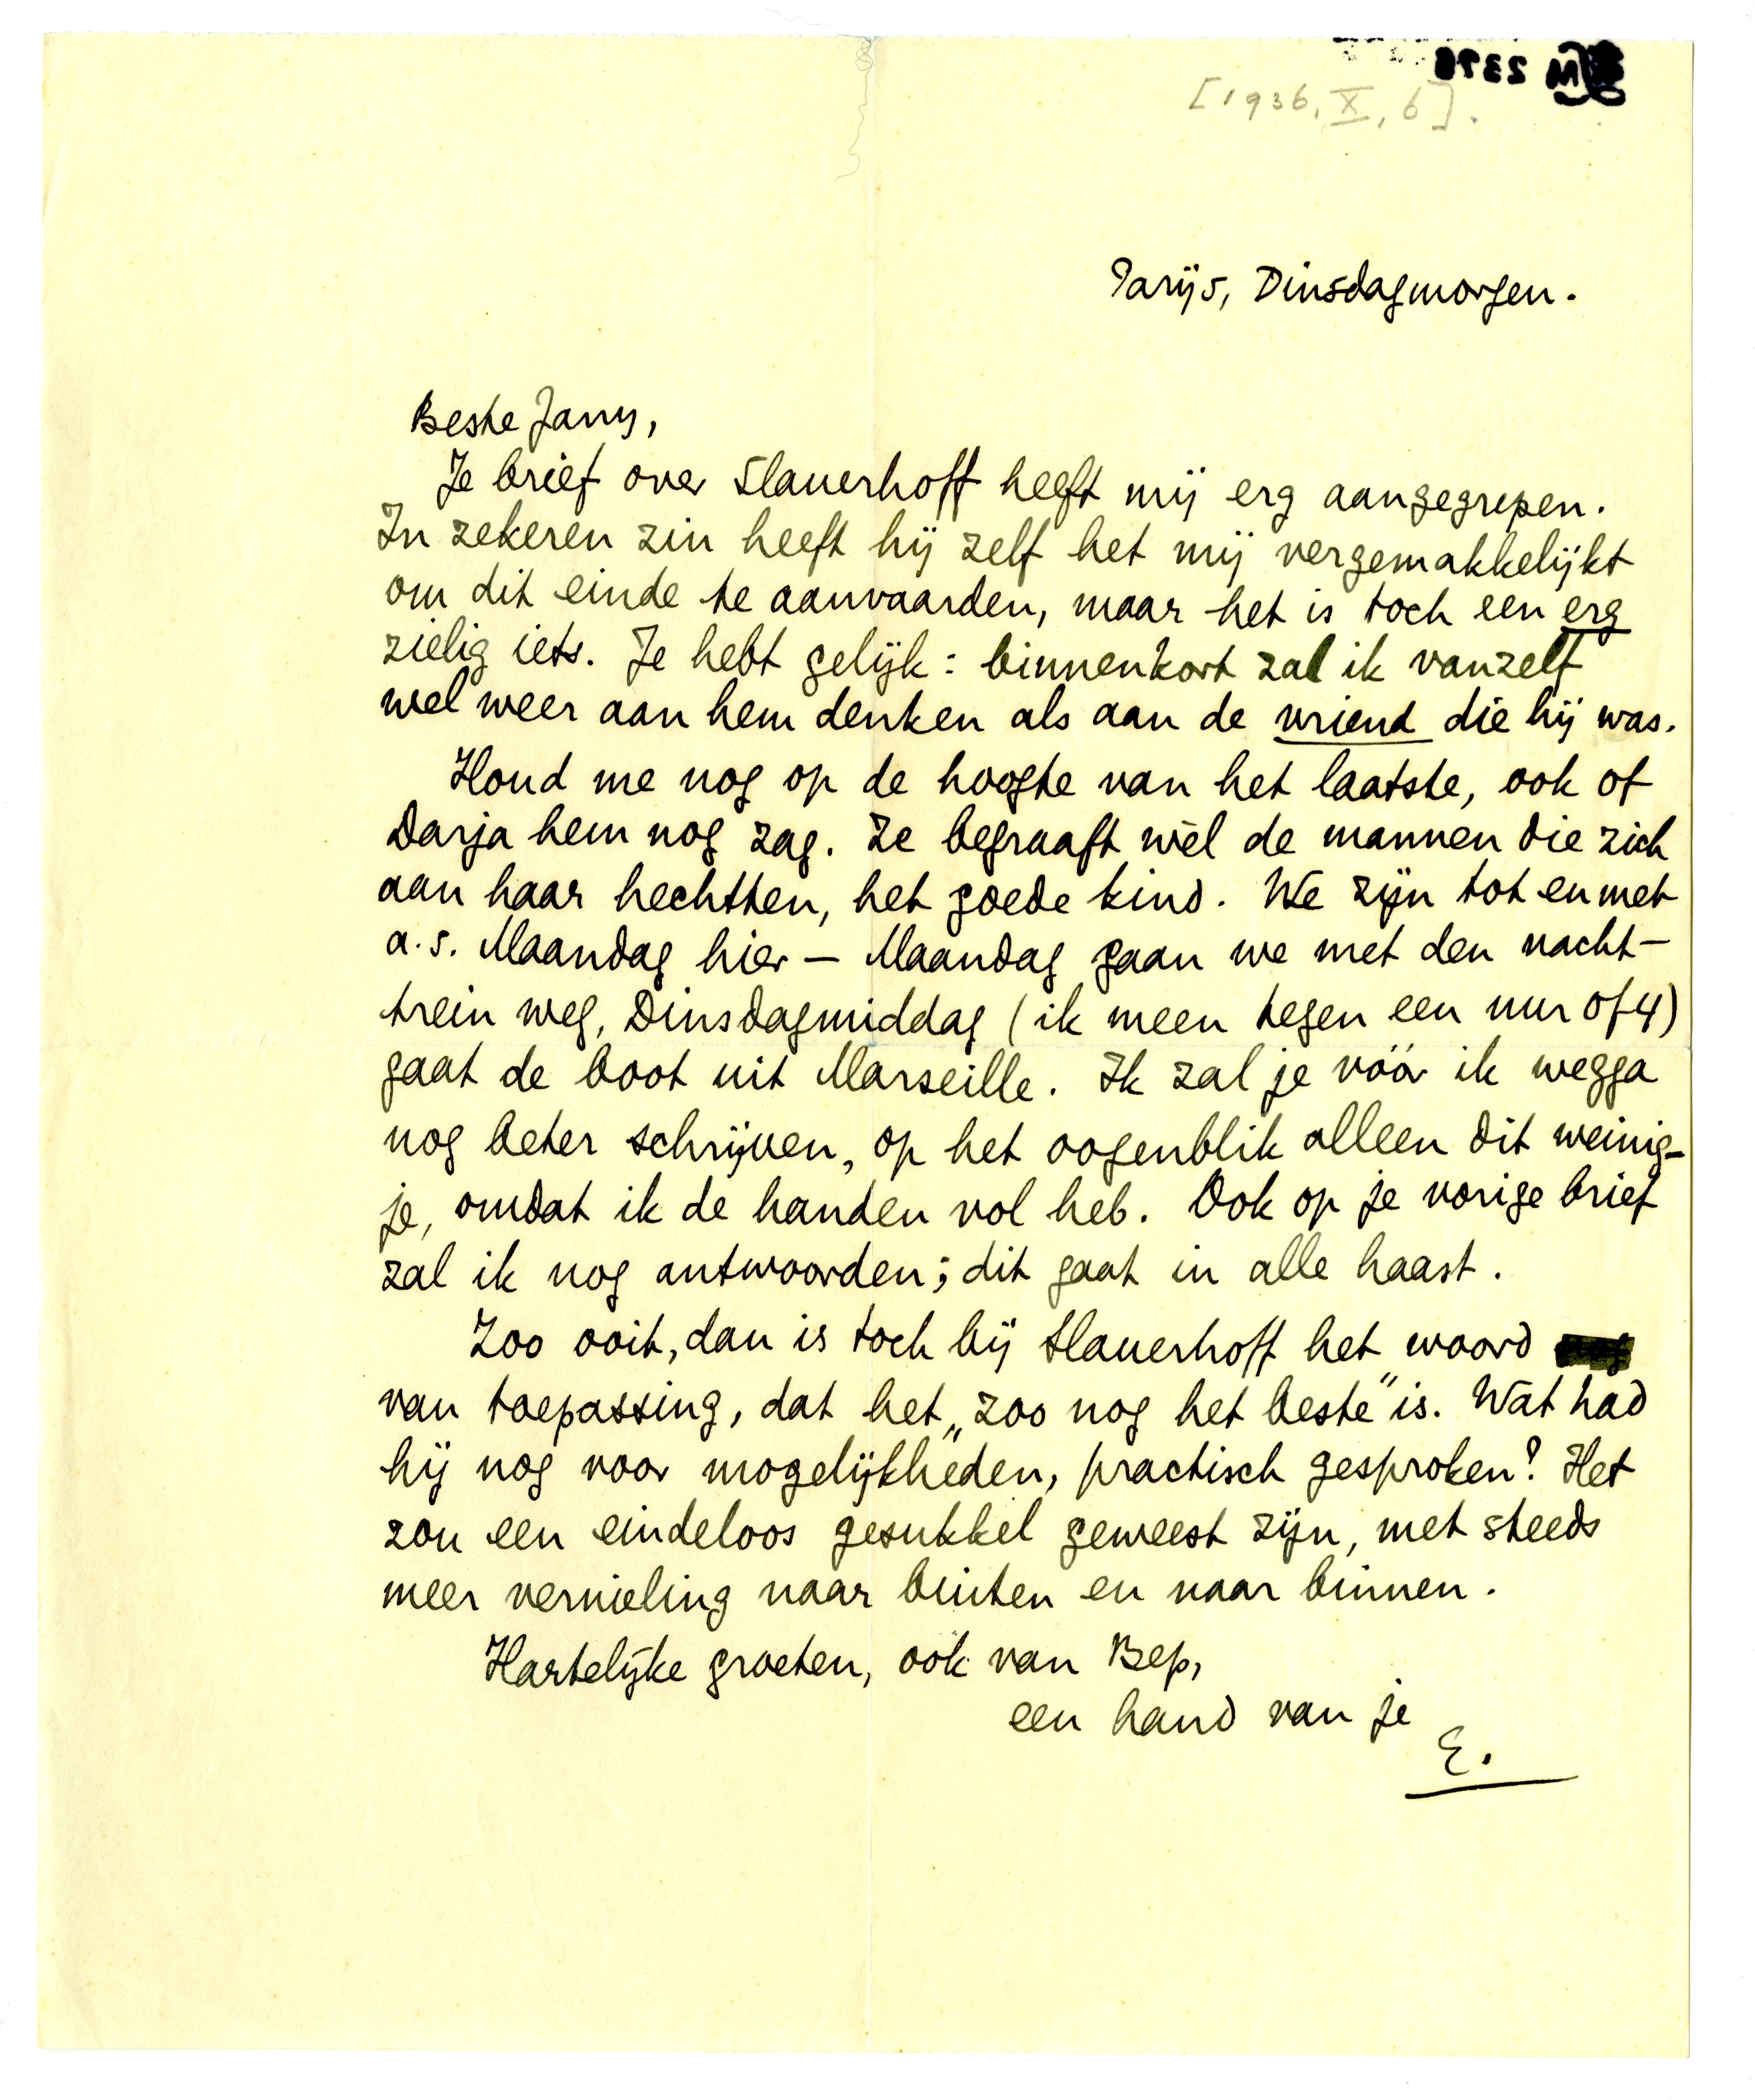 [1936, X, 6].
Parijs, Dinsdagmorgen.
Beste Jany,
Je brief over Slauerhoff heeft mij erg aangegrepen.
In zekeren zin heeft hij zelf het mij vergemakkelijkt
om dit einde te aanvaarden, maar het is toch een erg
zielig iets. Je hebt gelijk: binnenkort zal ik vanzelf
wel weer aan hem denken als aan de vriend die hij was.
Houd me nog op de hoogte van het laatste, ook of
Darja hem nog zag. Ze begraaft wèl de mannen die zich
aan haar hechtten, het goede kind. We zijn tot en met
a.s. Maandag hier — Maandag gaan we met den nacht-
trein weg, Dinsdagmiddag (ik meen tegen een uur of 4)
gaat de boot uit Marseille. Ik zal je vóór ik wegga
nog beter schrijven, op het oogenblik alleen dit weinig-
je, omdat ik de handen vol heb. Ook op je vorige brief
zal ik nog antwoorden; dit gaat in alle haast.
Zoo ooit, dan is toch bij Slauerhoff het woord
van toepassing, dat het „zoo nog het beste" is. Wat had
hij nog voor mogelijkheden, practisch gesproken? Het
zou een eindeloos gesukkel geweest zijn, met steeds
meer vernieling naar buiten en naar binnen.
Hartelijke groeten, ook van Bep,
een hand van je
E.